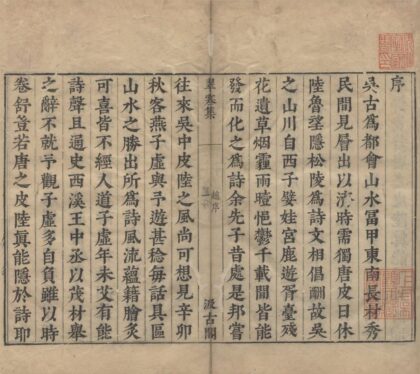 序
吳古爲都會山水冨甲東南長材秀
民間見層出以濟時需獨唐皮日休
陸魯望隱松陵爲詩文相倡酬故吳
之山川自西子娃宮鹿遊胥臺殘
花遺草烟霾雨曀悒鬱千載間皆能
發而化之爲詩余先子昔處是邦嘗
翠寒集
趙序
汲古閣
往來吳中皮陸之風尚可想見辛卯
秋客燕子虛與予遊甚稔每話具區
山水之勝出所爲詩風流蘊籍膾炙
可喜皆不經人道子虛年未艾有能
詩聲且通史西溪王中丞以茂材舉
之辭不就予觀子虛多自負雖以時
卷舒豈若唐之皮陸眞能隱於詩耶